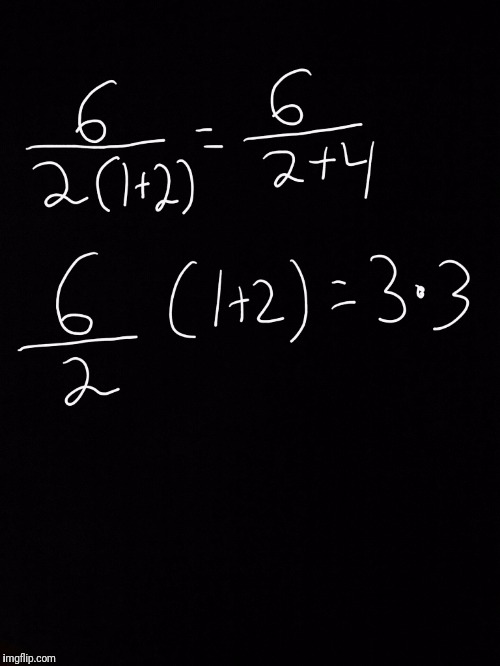 6/2(1+2) = 6/2+4
6/2 (1+2) = 3·3
imgflip.com